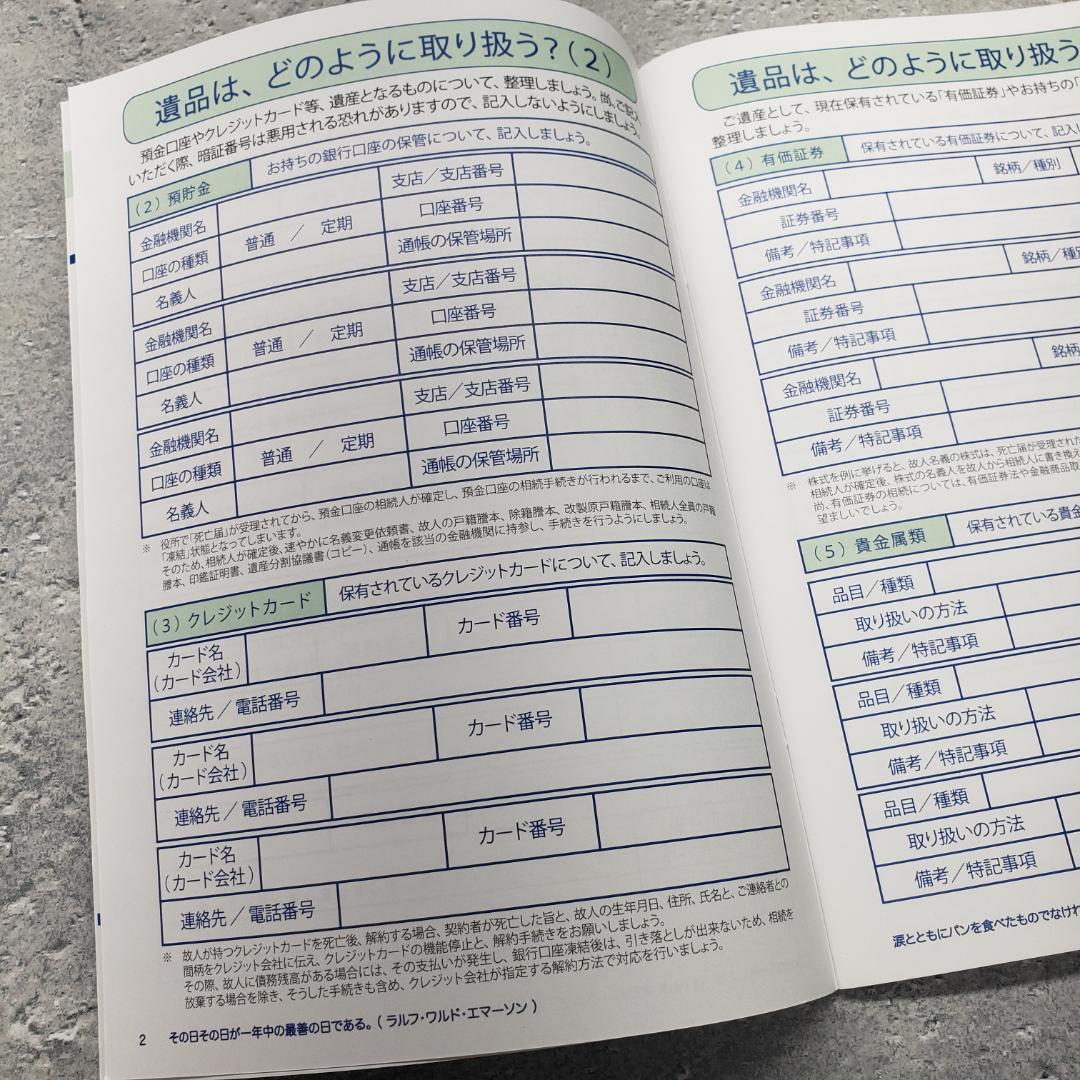 遺品は、どのように取り扱う？（2）
預金口座やクレジットカード等、遺産となるものについて、整理しましょう。尚、ご記入
いただく際、暗証番号は悪用される恐れがありますので、記入しないようにしましょう。
（2）預貯金　お持ちの銀行口座の保管について、記入しましょう。
金融機関名　支店／支店番号
口座の種類　普通　／　定期　口座番号
名義人　通帳の保管場所
金融機関名　支店／支店番号
口座の種類　普通　／　定期　口座番号
名義人　通帳の保管場所
金融機関名　支店／支店番号
口座の種類　普通　／　定期　口座番号
名義人　通帳の保管場所
※　役所で「死亡届」が受理されてから、預金口座の相続人が確定し、預金口座の相続手続きが行われるまで、ご利用の口座は
「凍結」状態となってしまいます。
そのため、相続人が確定後、速やかに名義変更依頼書、故人の戸籍謄本、除籍謄本、改製原戸籍謄本、相続人全員の戸籍
謄本、印鑑証明書、遺産分割協議書（コピー）、通帳を該当の金融機関に持参し、手続きを行うようにしましょう。
（3）クレジットカード　保有されているクレジットカードについて、記入しましょう。
カード名
（カード会社）　カード番号
連絡先／電話番号
カード名
（カード会社）　カード番号
連絡先／電話番号
カード名
（カード会社）　カード番号
連絡先／電話番号
※　故人が持つクレジットカードを死亡後、解約する場合、契約者が死亡した旨と、故人の生年月日、住所、氏名と、ご連絡者との
間柄をクレジット会社に伝え、クレジットカードの機能停止と、解約手続きをお願いしましょう。
その際、故人に債務残高がある場合には、その支払いが発生し、銀行口座凍結後は、引き落としが出来ないため、相続を
放棄する場合を除き、そうした手続きも含め、クレジット会社が指定する解約方法で対応を行いましょう。
2　その日その日が一年中の最善の日である。（ラルフ・ワルド・エマーソン）
遺品は、どのように取り扱う
ご遺産として、現在保有されている「有価証券」やお持ちの「
整理しましょう。
（4）有価証券　保有されている有価証券について、記入し
金融機関名　銘柄／種別
証券番号
備考／特記事項
金融機関名　銘柄／種別
証券番号
備考／特記事項
金融機関名　銘柄
証券番号
備考／特記事項
※　株式を例に挙げると、故人名義の株式は、死亡届が受理された
相続人が確定後、株式の名義人を故人から相続人に書き換え
尚、有価証券の相続については、有価証券法や金融商品取
望ましいでしょう。
（5）貴金属類　保有されている貴金
品目／種類
取り扱いの方法
備考／特記事項
品目／種類
取り扱いの方法
備考／特記事項
品目／種類
取り扱いの方法
備考／特記事項
涙とともにパンを食べたものでなけれ